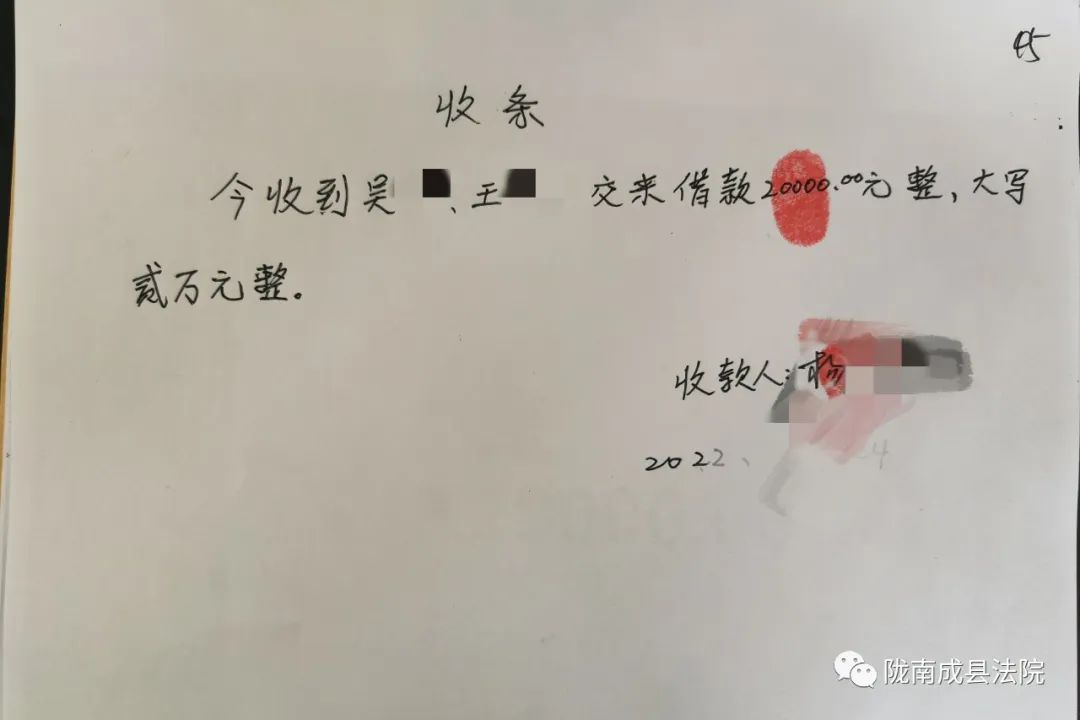 45
收条
今收到吴、王 交来借款20000.00元整,大写
贰万元整。
收款人:杨
2022、 4
陇南成县法院